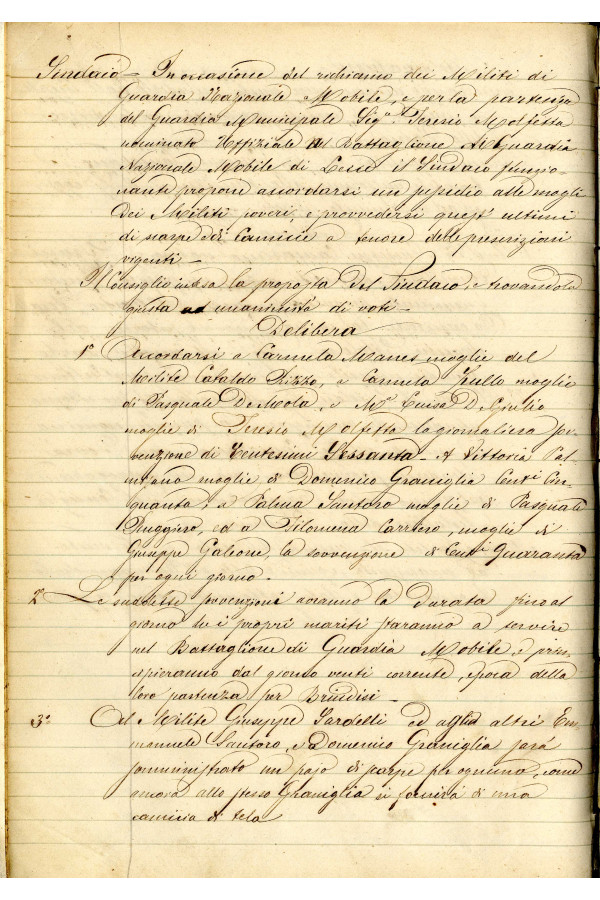 Sindaco – In occasione del richiamo dei Militi di
Guardia Nazionale Mobile, e per la partenza
del Guardia Municipale Sigr. Teresio Molfetta
nominato Uffiziale al Battaglione di Guardia
Nazionale Mobile di Lecce il Sindaco funzio-
nante propone accordarsi un sussidio alle mogli
dei Militi poveri, e provvedersi quest'ultimi
di scarpe e di Camicie a tenore delle prescrizioni
vigenti –
Il Consiglio intesa la proposta del Sindaco, e trovandola
giusta ad unanimità di voti –
Delibera
1º Accordarsi a Carmela Manes moglie del
Milite Cataldo Rizzo, a Carmela Zullo moglie
di Pasquale De Mola, e Mª Luisa D. Giulio
moglie di Teresio Molfetta la giornaliera sov-
venzione di Centesimi Sessanta – A Vittoria Pal-
misano moglie di Domenico Graniglia Centi Cin-
quanta; a Palma Santoro moglie di Pasquale
Ruggiero, ed a Filomena Carriero, moglie di
Giuseppe Galeone, la sovvenzione di Centi Quaranta
per ogni giorno –
2º Le suddette sovvenzioni avranno la durata fino al
giorno che i proprî mariti staranno a servire
nel Battaglione di Guardia Mobile, e prin-
cipieranno dal giorno venti corrente, epoca della
loro partenza per Brindisi –
3º Al Milite Giuseppe Sardelli ed agli altri Em-
manuele Santoro, e Domenico Graniglia sarà
somministrato un pajo di scarpe per ognuno, come
ancora allo stesso Graniglia si fornirà di una
camicia di tela